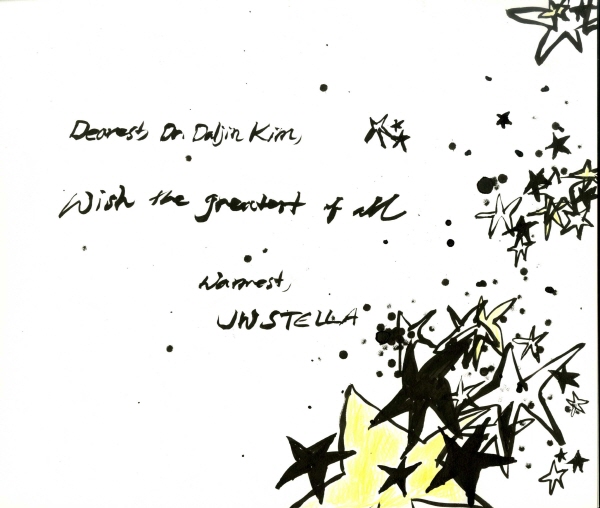 Dearest, Dr. Daljin Kim,
Wish the greatest of all
Warmest,
JW STELLA